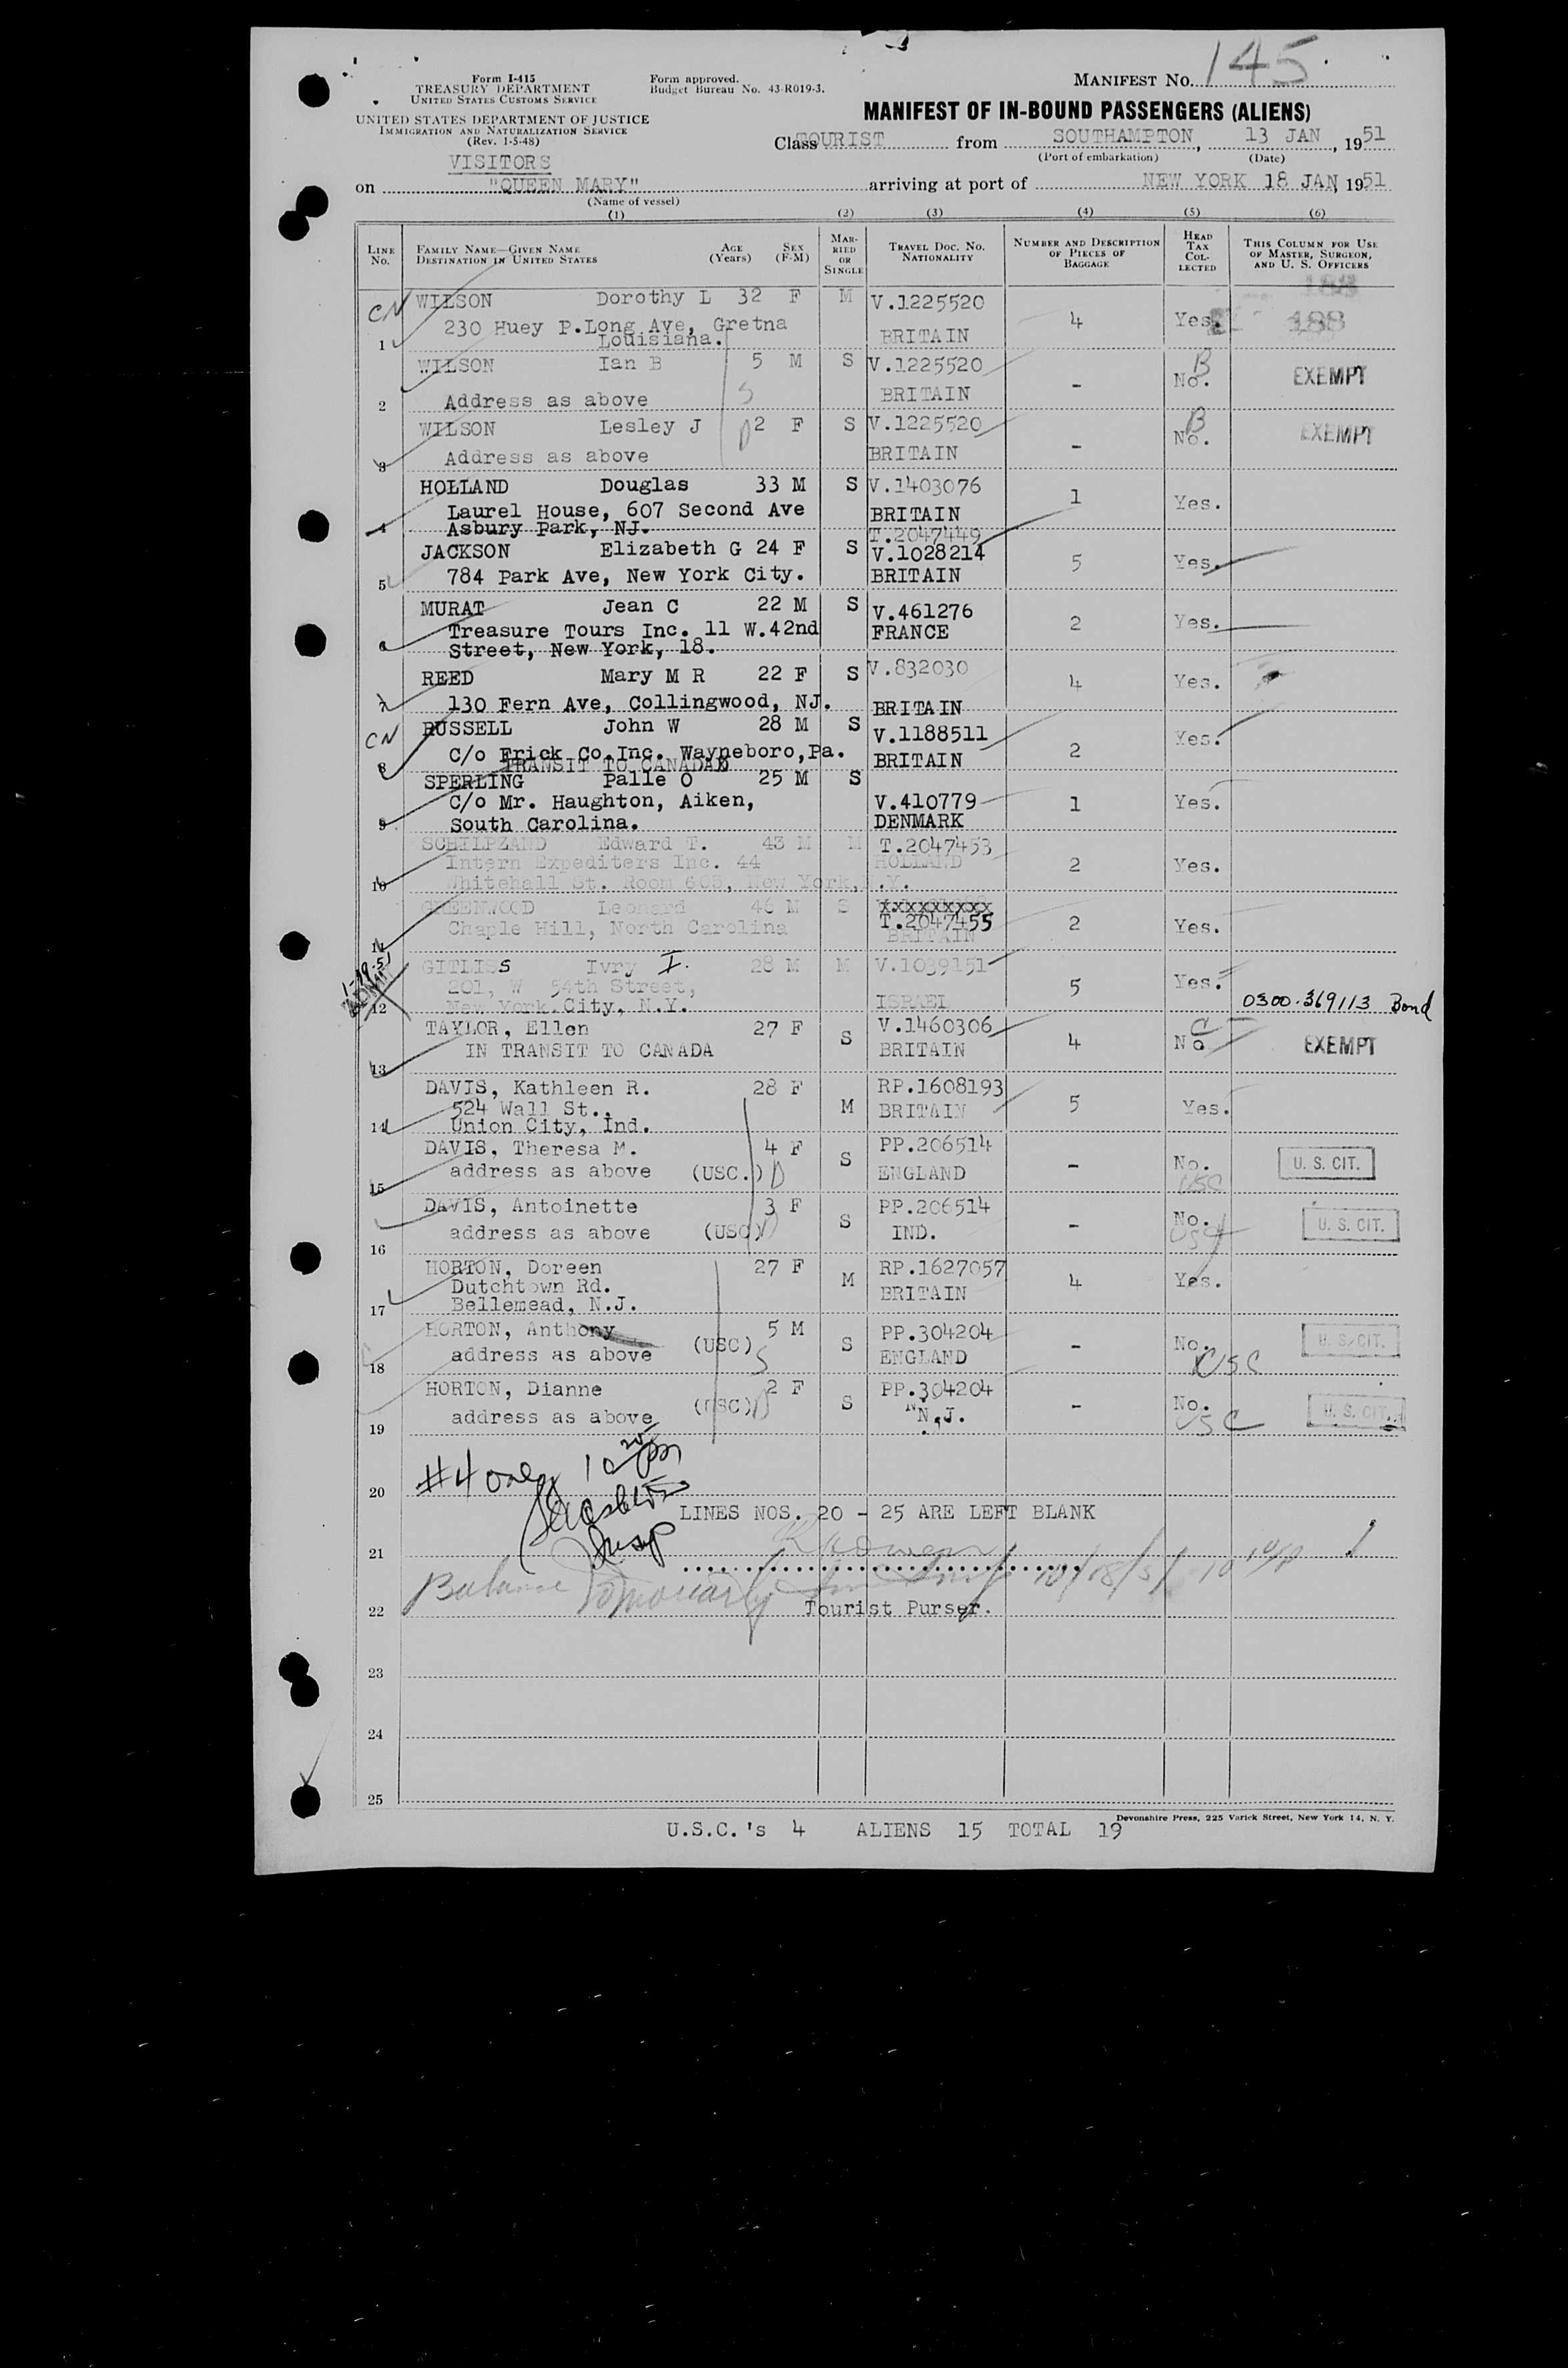 Form I-415
TREASURY DEPARTMENT
UNITED STATES CUSTOMS SERVICE
UNITED STATES DEPARTMENT OF JUSTICE
IMMIGRATION AND NATURALIZATION SERVICE
(Rev. 1-5-48)
Form approved.
Budget Bureau No. 43-R019-3.
MANIFEST No. 145
MANIFEST OF IN-BOUND PASSENGERS (ALIENS)
Class TOURIST from SOUTHAMPTON, 13 JAN, 1951
(Port of embarkation) (Date)
VISITORS
on "QUEEN MARY" arriving at port of NEW YORK 18 JAN, 1951
(Name of vessel)
(1) (2) (3) (4) (5) (6)
LINE No. FAMILY NAME—GIVEN NAME DESTINATION IN UNITED STATES AGE (Years) SEX (F-M) MARRIED OR SINGLE TRAVEL DOC. NO. NATIONALITY NUMBER AND DESCRIPTION OF PIECES OF BAGGAGE HEAD TAX COLLECTED THIS COLUMN FOR USE OF MASTER, SURGEON, AND U. S. OFFICERS
188
CN WILSON Dorothy L 32 F M V.1225520
230 Huey P.Long Ave, Gretna 4 Yes. 188
1 Louisiana. BRITAIN
WILSON Ian B 5 M S V.1225520 - No. B EXEMPT
2 Address as above S BRITAIN
WILSON Lesley J 2 F S V.1225520 - No. B EXEMPT
3 Address as above BRITAIN
HOLLAND Douglas 33 M S V.1403076 1 Yes.
Laurel House, 607 Second Ave BRITAIN
4 Asbury Park, NJ. T.2047449
JACKSON Elizabeth G 24 F S V.1028214 5 Yes.
5 784 Park Ave, New York City. BRITAIN
MURAT Jean C 22 M S V.461276 2 Yes.
Treasure Tours Inc. 11 W.42nd FRANCE
6 Street, New York, 18.
REED Mary M R 22 F S V.832030 4 Yes.
7 130 Fern Ave, Collingwood, NJ. BRITAIN
CN RUSSELL John W 28 M S V.1188511 2 Yes.
8 C/o Frick Co.Inc. Wayneboro,Pa. BRITAIN
TRANSIT TO CANADA
SPERLING Palle O 25 M S
C/o Mr. Haughton, Aiken, V.410779 1 Yes.
9 South Carolina. DENMARK
SCHILPZAND Edward T. 43 M M T.2047453
Intern Expediters Inc. 44 HOLLAND 2 Yes.
10 Whitehall St. Room 605, New York,N.Y.
GREENWOOD Leonard 46 M S xxxxxxxxx
T.2047455 2 Yes.
11 Chaple Hill, North Carolina BRITAIN
1-19-51 ADMIT
GITLISS Ivry I. 28 M M V.1039151
201, W 54th Street, 5 Yes.
12 New York.City, N.Y. ISRAEL 0300-369113 Bond
TAYLOR, Ellen 27 F S V.1460306 4 No EXEMPT
13 IN TRANSIT TO CANADA BRITAIN
DAVIS, Kathleen R. 28 F M RP.1608193 5 Yes.
524 Wall St., BRITAIN
14 Union City, Ind.
DAVIS, Theresa M. 4 F S PP.206514 - No. U. S. CIT.
15 address as above (USC.) D ENGLAND USC
DAVIS, Antoinette 3 F S PP.206514 - No. U. S. CIT.
16 address as above (USC) D IND. USC
HORTON, Doreen 27 F M RP.1627057 4 Yes.
Dutchtown Rd. BRITAIN
17 Bellemead, N.J.
HORTON, Anthony 5 M S PP.304204 - No. U. S. CIT.
18 address as above (USC) S ENGLAND USC
HORTON, Dianne 2 F S PP.304204 - No. U. S. CIT.
19 address as above (USC) D N.J. USC
#4 only 10
20
LINES NOS. 20 - 25 ARE LEFT BLANK
Insp
21
Balance 10/18/51 10
22 Tourist Purser.
23
24
25
Devonshire Press, 225 Varick Street, New York 14, N. Y.
U.S.C.'s 4 ALIENS 15 TOTAL 19